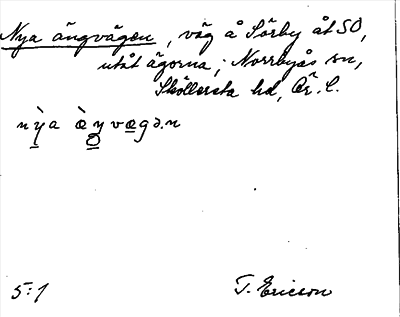 Nya ängvägen, väg å Sörby åt SO,
utåt ägorna; Norrbyås sn,
Sköllersta hd, Ör. l.
nỳa æ̀ŋvægən
5:1 T. Ericson